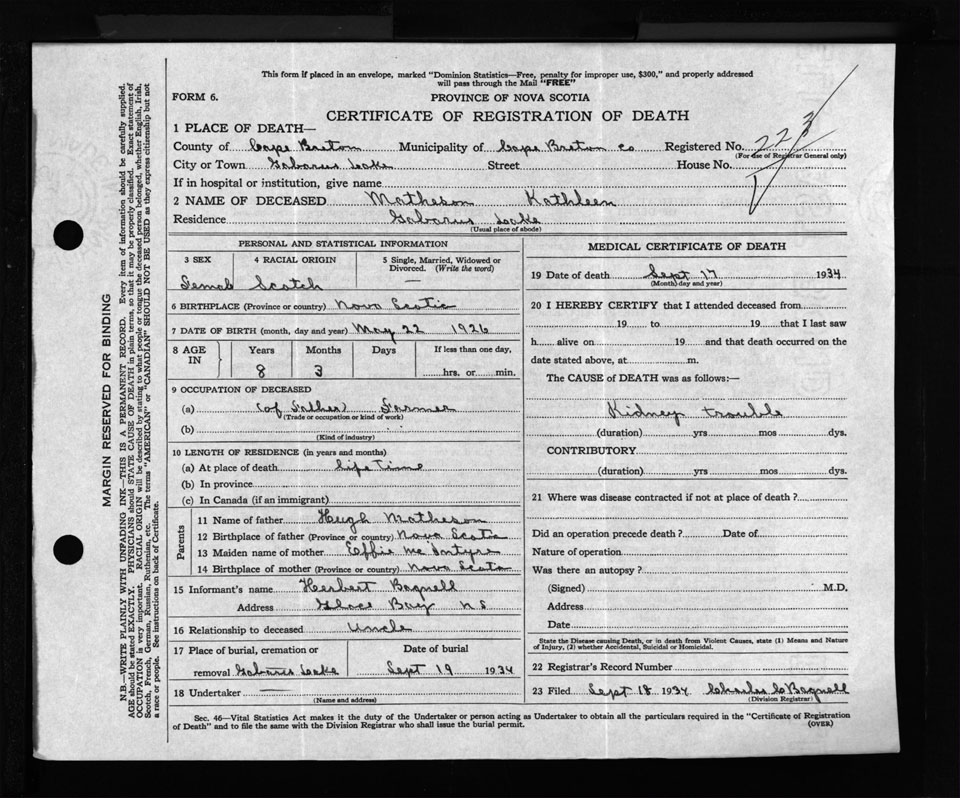 This form if placed in an envelope, marked "Dominion Statistics—Free, penalty for improper use, $300," and properly addressed
will pass through the Mail "FREE"
FORM 6.
PROVINCE OF NOVA SCOTIA
CERTIFICATE OF REGISTRATION OF DEATH
1 PLACE OF DEATH—
County of Cape Breton Municipality of Cape Breton Co Registered No. 223
(For use of Registrar General only)
City or Town Gabarus Lake Street House No.
If in hospital or institution, give name
2 NAME OF DECEASED Matheson Kathleen
Residence Gabarus Lake
(Usual place of abode)
PERSONAL AND STATISTICAL INFORMATION
3 SEX 4 RACIAL ORIGIN 5 Single, Married, Widowed or
Divorced. (Write the word)
Female Scotch —
6 BIRTHPLACE (Province or country) Nova Scotia
7 DATE OF BIRTH (month, day and year) May 22 1926
8 AGE IN Years Months Days If less than one day,
8 3 hrs. or min.
9 OCCUPATION OF DECEASED
(a) (of Father) Farmer
(Trade or occupation or kind of work)
(b)
(Kind of industry)
10 LENGTH OF RESIDENCE (in years and months)
(a) At place of death Life Time
(b) In province
(c) In Canada (if an immigrant)
Parents
11 Name of father Hugh Matheson
12 Birthplace of father (Province or country) Nova Scotia
13 Maiden name of mother Effie McIntyre
14 Birthplace of mother (Province or country) Nova Scotia
15 Informant's name Herbert Bagnell
Address Glace Bay N.S.
16 Relationship to deceased Uncle
17 Place of burial, cremation or Date of burial
removal Gabarus Lake Sept 19 1934
18 Undertaker —
(Name and address)
MEDICAL CERTIFICATE OF DEATH
19 Date of death Sept 17 1934
(Month) day and year)
20 I HEREBY CERTIFY that I attended deceased from
19 to 19 that I last saw
h alive on 19 and that death occurred on the
date stated above, at m.
The CAUSE of DEATH was as follows:—
Kidney trouble
(duration) yrs mos dys.
CONTRIBUTORY
(duration) yrs mos dys.
21 Where was disease contracted if not at place of death ?
Did an operation precede death ? Date of
Nature of operation
Was there an autopsy ?
(Signed) M.D.
Address
Date
State the Disease causing Death, or in death from Violent Causes, state (1) Means and Nature
of Injury, (2) whether Accidental, Suicidal or Homicidal.
22 Registrar's Record Number
23 Filed Sept 18 1934 Charles C Bagnell
(Division Registrar)
Sec. 46—Vital Statistics Act makes it the duty of the Undertaker or person acting as Undertaker to obtain all the particulars required in the "Certificate of Registration
of Death" and to file the same with the Division Registrar who shall issue the burial permit.
(OVER)
MARGIN RESERVED FOR BINDING
N.B.—WRITE PLAINLY WITH UNFADING INK—THIS IS A PERMANENT RECORD. Every item of information should be carefully supplied.
AGE should be stated EXACTLY. PHYSICIANS should STATE CAUSE OF DEATH in plain terms, so that it may be properly classified. Exact statement of
OCCUPATION is very important. RACIAL ORIGIN will be described by stating to what people or tongue the deceased person belonged, whether English, Irish,
Scotch, French, German, Russian, Ruthenian, etc. The terms "AMERICAN" or "CANADIAN" SHOULD NOT BE USED as they express citizenship but not
a race or people. See instructions on back of Certificate.